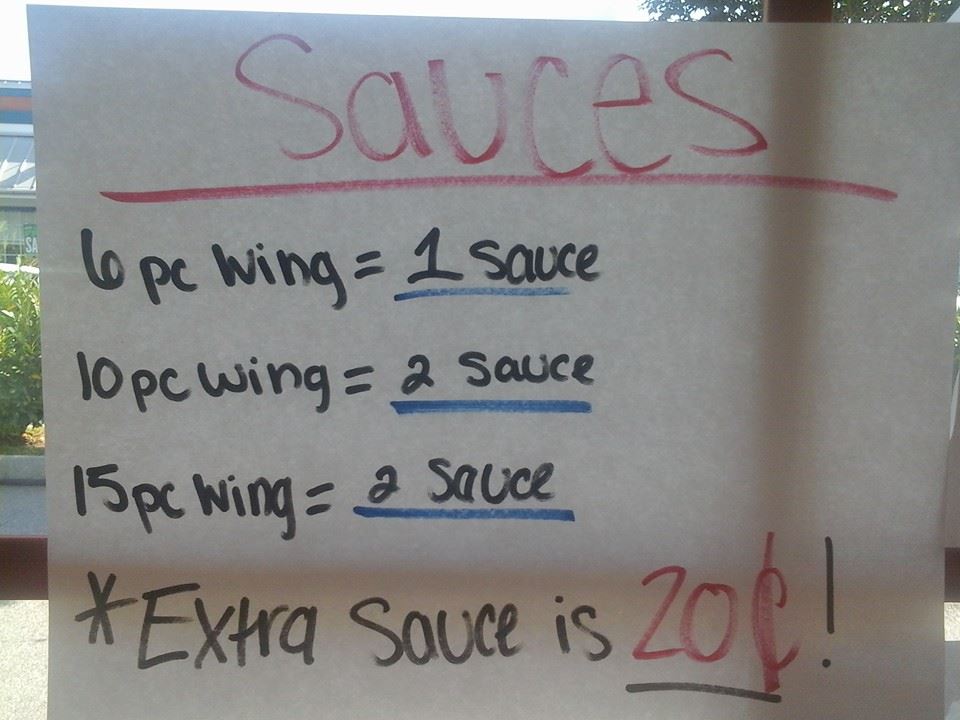 Sauces
6 pc Wing = 1 Sauce
10 pc Wing = 2 Sauce
15 pc Wing = 2 Sauce
*Extra Sauce is 20¢!
SA